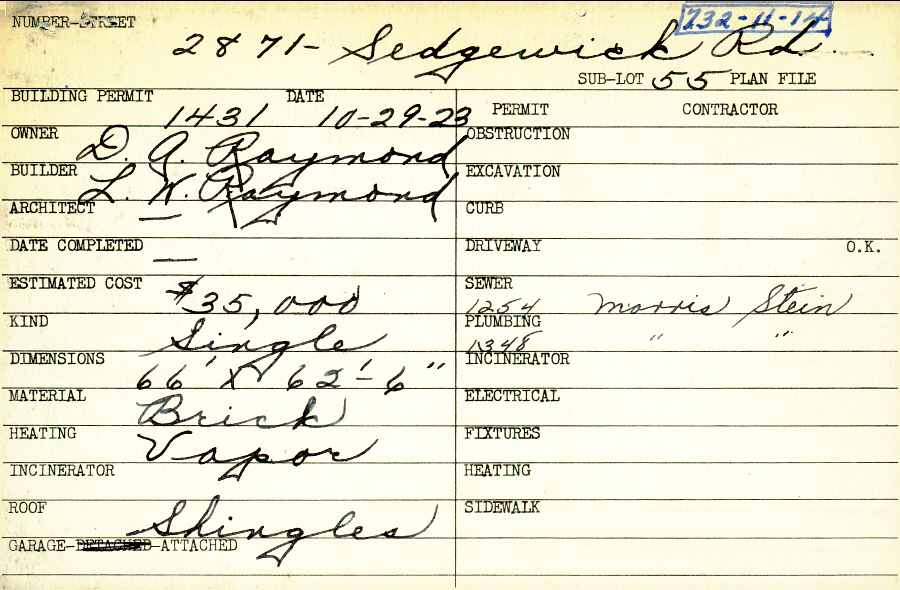 NUMBER-STREET 732-11-14A
2871- Sedgewick Rd.
SUB-LOT 55 PLAN FILE
BUILDING PERMIT 1431 DATE 10-29-23
PERMIT CONTRACTOR
OWNER D. A. Raymond
OBSTRUCTION
BUILDER L. W. Raymond
EXCAVATION
ARCHITECT —
CURB
DATE COMPLETED —
DRIVEWAY O.K.
ESTIMATED COST $35,000
SEWER 1254 Morris Stein
KIND Single
PLUMBING 1348 " "
DIMENSIONS 66' X 62'-6"
INCINERATOR
MATERIAL Brick
ELECTRICAL
HEATING Vapor
FIXTURES
INCINERATOR
HEATING
ROOF Shingles
SIDEWALK
GARAGE-DETACHED-ATTACHED